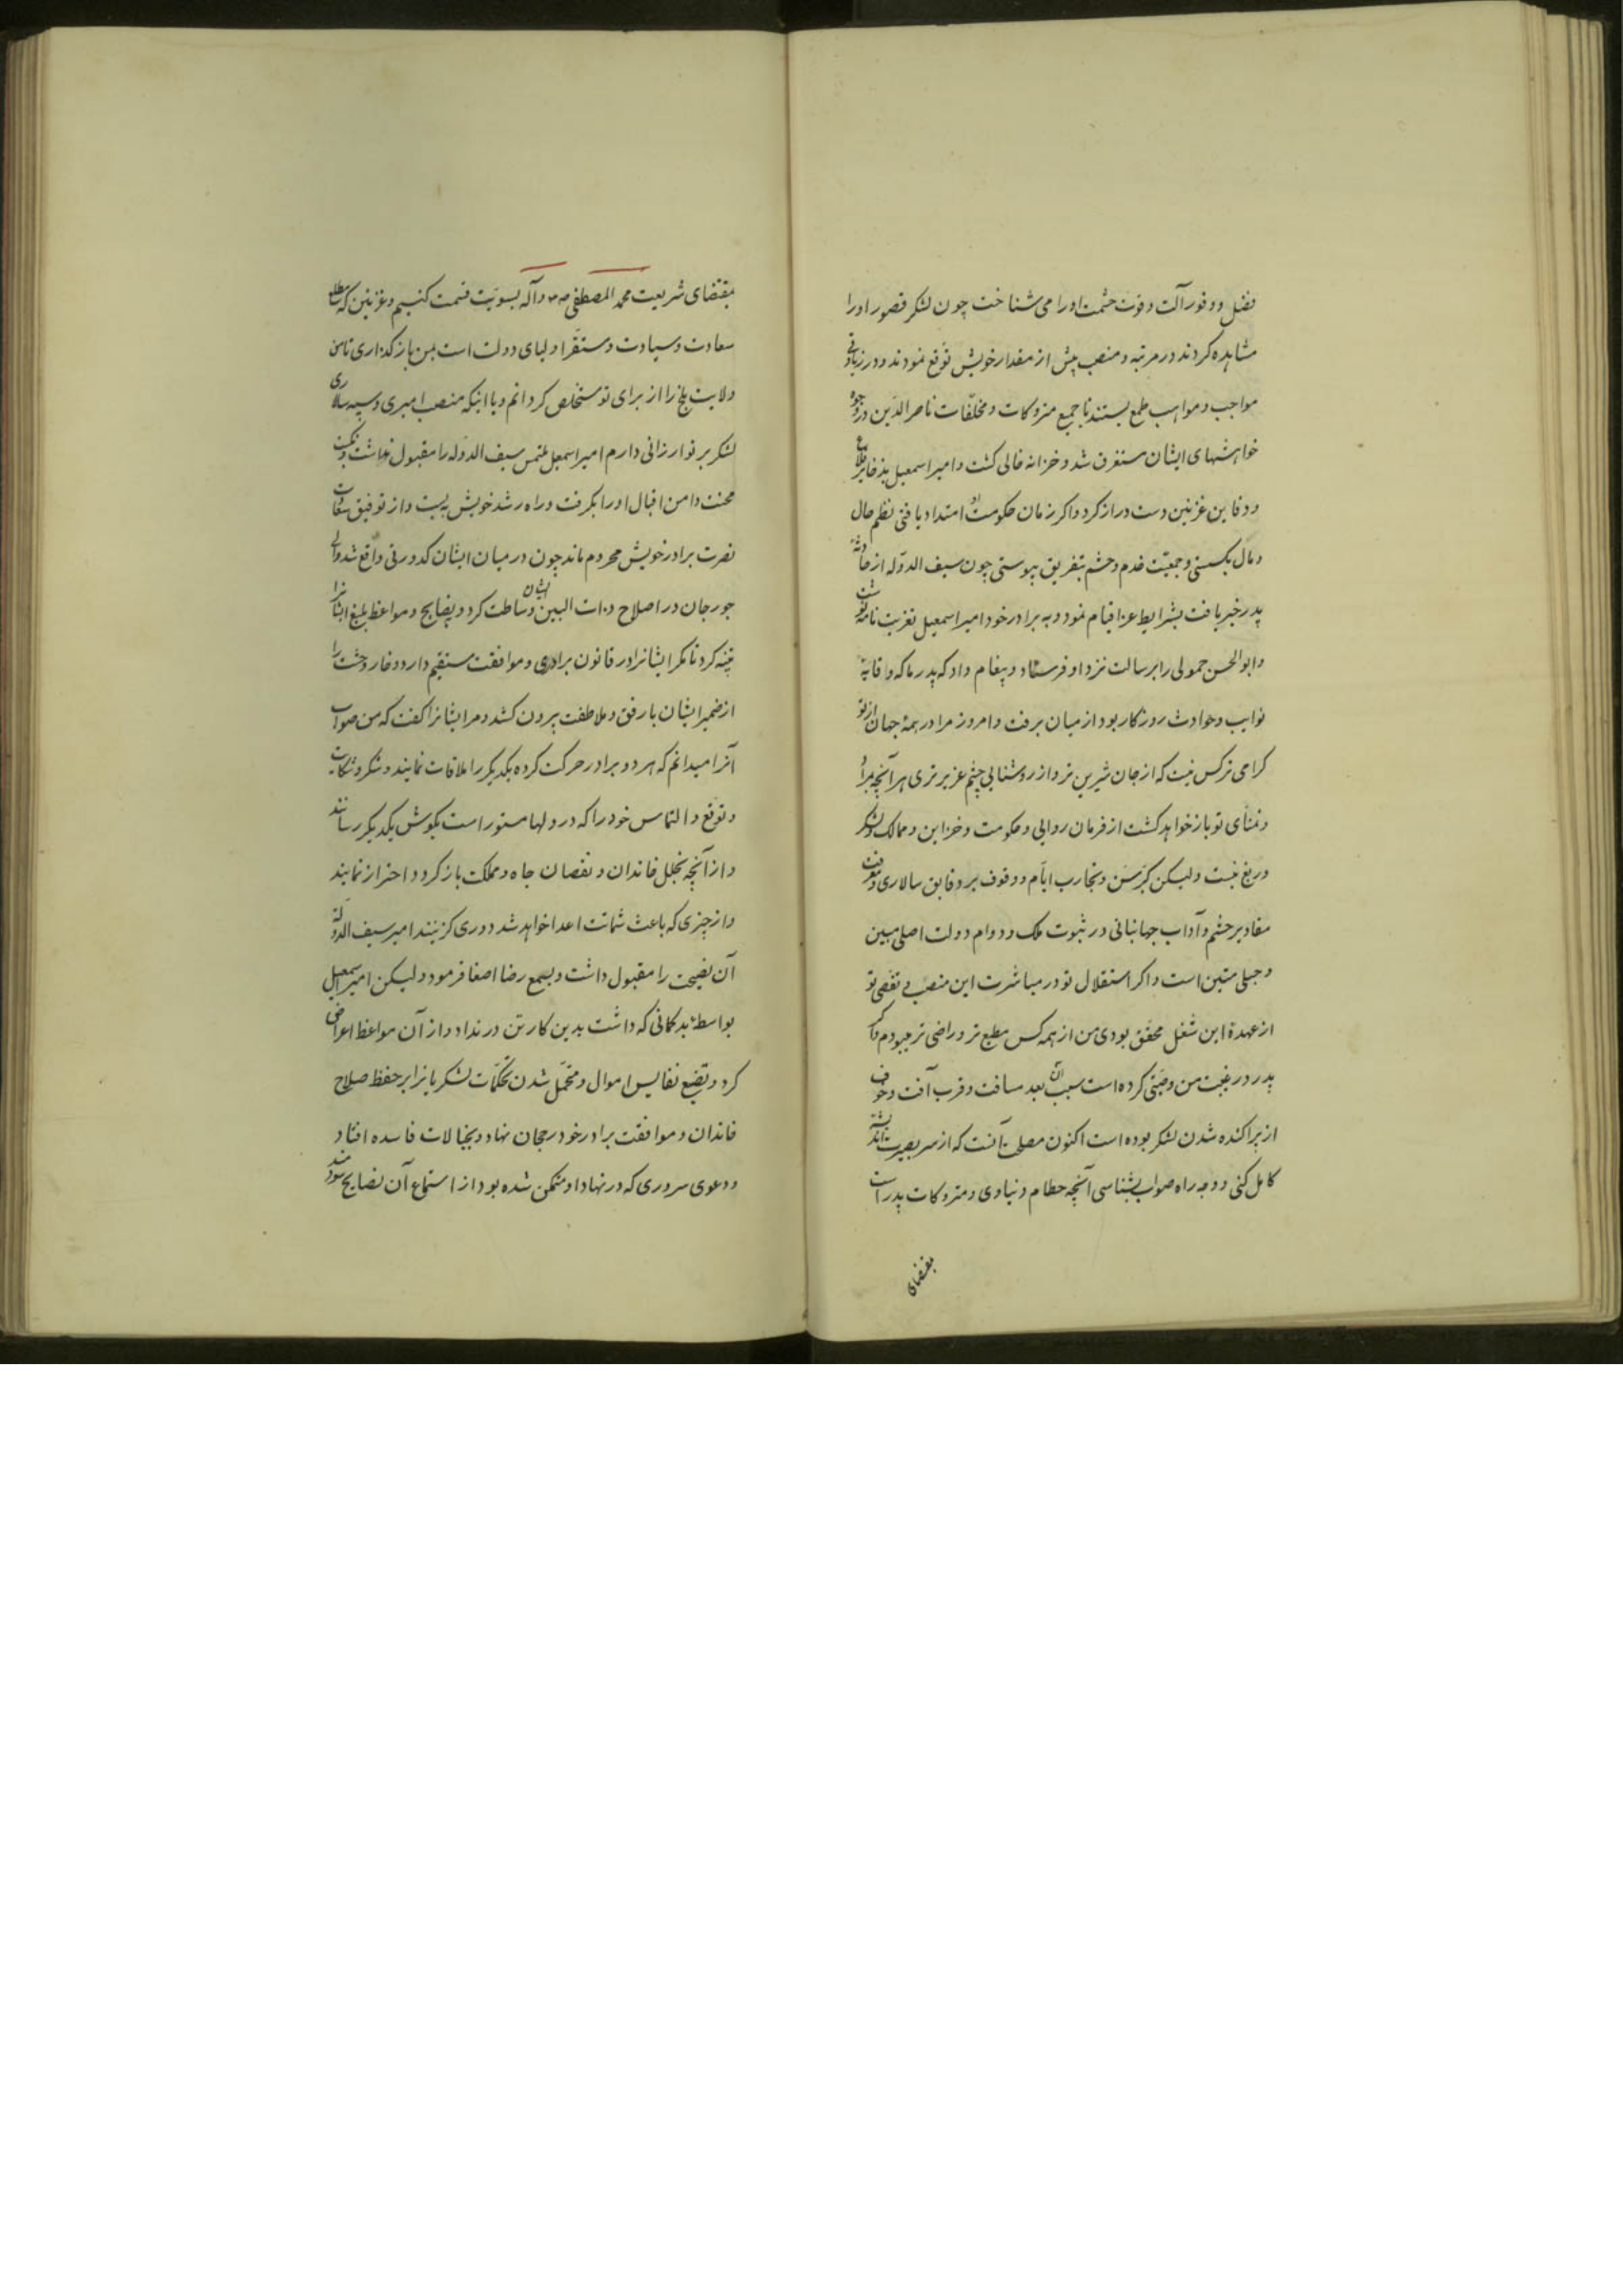 فضل و وفور آلت و قوت حشمت او را می شناخت چون لشکر قصور او را
مشاهده کردند در مرتبه و منصب پیش از مقدار خویش توقع نمودند و در زیادتی
مواجب و مواهب طمع بستند تا جمیع متروکات و مخلّفات ناصر الدّین در وجوه
خواهشهای ایشان مستغرق شد و خزانه خالی گشت و امیر اسمعیل بذخایر قلاع
و دفاین غزنین دست دراز کرد و اگر زمان حکومت او امتداد یافتی نظم حال
و مال بگسستی و جمعیّت خدم و حشم بتفریق پیوستی چون سیف الدوله از حادثهٔ
پدر خبر یافت بشرایط عزا قیام نمود و به برادر خود امیر اسمعیل تعزیت نامه نوشت
و ابو الحسن حمولی را برسالت نزد او فرستاد و پیغام داد که پدر ما که وقایهٔ
نوایب و حوادث روزکار بود از میان برفت و امروز مرا در همهٔ جهان از تو
کرامی تر کس نیست که از جان شیرین تر و از روشنایی چشم عزیز تری هر آنچه مراد
و تمنّای تو باز خواهد کشت از فرمان روایی و حکومت و خزاین و ممالک و لشکر
دریغ نیست ولیکن کبر سن و تجارب ایّام و وقوف بر دقایق سالاری و معرفت
مقادیر حشم و آداب جهانبانی در ثبوت ملک و دوام دولت اصلی مبین
و حبلی متین است و اکر استقلال تو در مباشرت این منصب و تقصّی تو
از عهدهٔ این شغل محقق بودی من از همه کس مطیع تر و راضی تر میبودم و آنکه
پدر در غیبت من وصیّتی کرده است سبب آن بعد مسافت و قرب آفت و خوف
از پراکنده شدن لشکر بوده است اکنون مصلحت آنست که از سر بصیرت اندیشهٔ
کامل کنی و وجه راه صواب بشناسی آنچه حطام دنیاوی و متروکات پدر است
بمقتضای
بمقتضای شریعت محمد المصطفی ص م و آله بسویّت قسمت کنیم و غزنین که مطلع
سعادت و سیادت و مستقرّ اولیای دولت است بمن باز کذاری تا من
ولایت بلخ را از برای تو مستخلص کردانم و با اینکه منصب امیری و سپه سالاری
لشکر بر تو ارزانی دارم امیر اسمعیل ملتمس سیف الدوله را مقبول نداشت و نکبت
محنت دامن اقبال او را بگرفت و راه رشد خویش به بست و از توفیق سعادت
نصرت برادر خویش محروم ماند چون در میان ایشان کدورتی واقع شد والی
جورجان در اصلاح ذات البین ایشان وساطت کرد و بنصایح و مواعظ بلیغ ایشانرا
تنبیه کرد تا مکر ایشانرا در قانون برادری و موافقت مستقیم دارد و خار وحشت را
از ضمیر ایشان با رفق و ملاطفت بیرون کشد و مر ایشانرا کفت که من صواب
آنرا میدانم که هر دو برادر حرکت کرده یکدیکر را ملاقات نمایند و شکر و شکایت
و توقع و التماس خود را که در دلها مستور است بکوش یکدیکر رسانند
و از آنچه بخلل خاندان و نقصان جاه و مملکت باز کردد احتراز نمایند
و از چیزی که باعث شماتت اعدا خواهد شد دوری کزینند امیر سیف الدوله
آن نصیحت را مقبول داشت و بسمع رضا اصغا فرمود ولیکن امیر اسمعیل
بواسطهٔ بد کمانی که داشت بدین کار تن در نداد و از آن مواعظ اعراض
کرد و تضییع نفایس اموال و متحمّل شدن تحکّمات لشکریانرا بر حفظ صلاح
خاندان و موافقت برادر خود رجحان نهاد و بخیالات فاسده افتاد
و دعوی سروری که در نهاد او متمکن شده بود از استماع آن نصایح سودمند